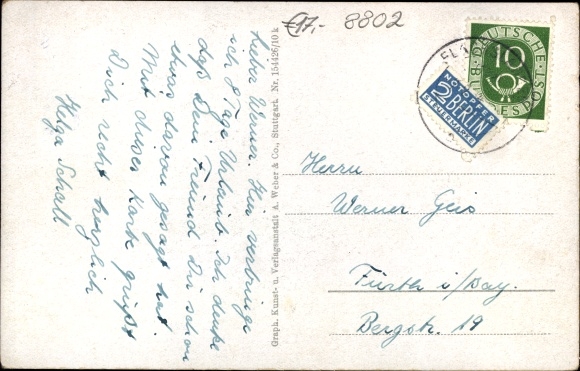 €17,-
8802
Lieber Werner. Hier verbringe
ich 8 Tage Urlaub. Ich denke
daß Dein Freund Dir schon
etwas davon gesagt hat.
Mit dieser Karte grüßt
Dich recht herzlich
Helga Schall
Graph. Kunst- u. Verlagsanstalt A. Weber & Co., Stuttgart. Nr. 154426/10 k
DEUTSCHE
10
NOTOPFER
2 BERLIN
STEUERMARKE
Herrn
Werner Geis
Fürth i/Bay.
Bergstr. 19